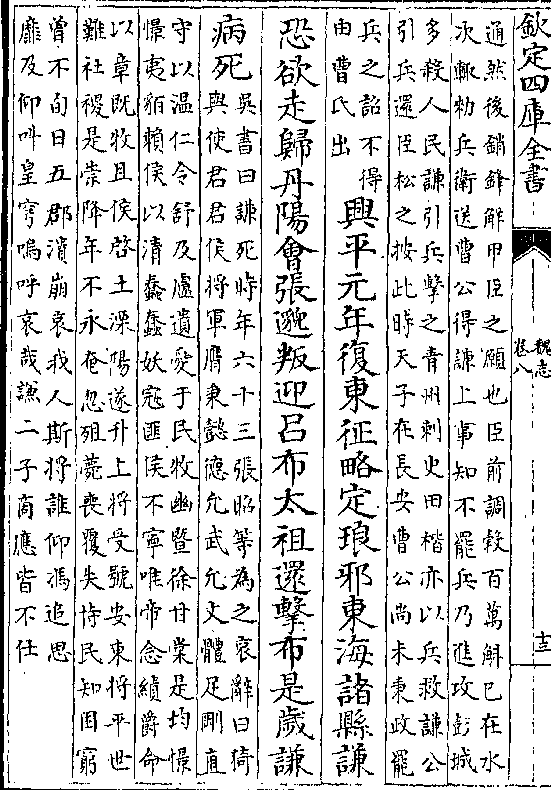 欽定四庫全書
魏志
卷八
十三
通然後銷鋒解甲臣之願也臣前調穀百萬斛已在水
次輙勑兵衛送曹公得謙上事知不罷兵乃進攻彭城
多殺人民謙引兵擊之青州刺史田楷亦以兵救謙公
引兵還臣松之按此時天子在長安曹公尚未秉政罷
兵之詔不得
由曹氏出
興平元年復東征略定琅邪東海諸縣謙
恐欲走歸丹陽會張邈叛迎呂布太祖還擊布是歲謙
病死
吳書曰謙死時年六十三張昭等為之哀辭曰猗
與使君君侯將軍膺秉懿德允武允文體足剛直
守以温仁令舒及廬遺愛于民牧幽暨徐甘棠是均憬
憬夷貊賴侯以清蠢蠢妖寇匪侯不寧唯帝念績爵命
以章既牧且侯啓土溧陽遂升上將受號安東將平世
難社稷是崇降年不永奄忽殂薨喪覆失恃民知困窮
曾不旬日五郡潰崩哀我人斯將誰仰馮追思
靡及仰叫皇穹嗚呼哀哉謙二子商應皆不仕